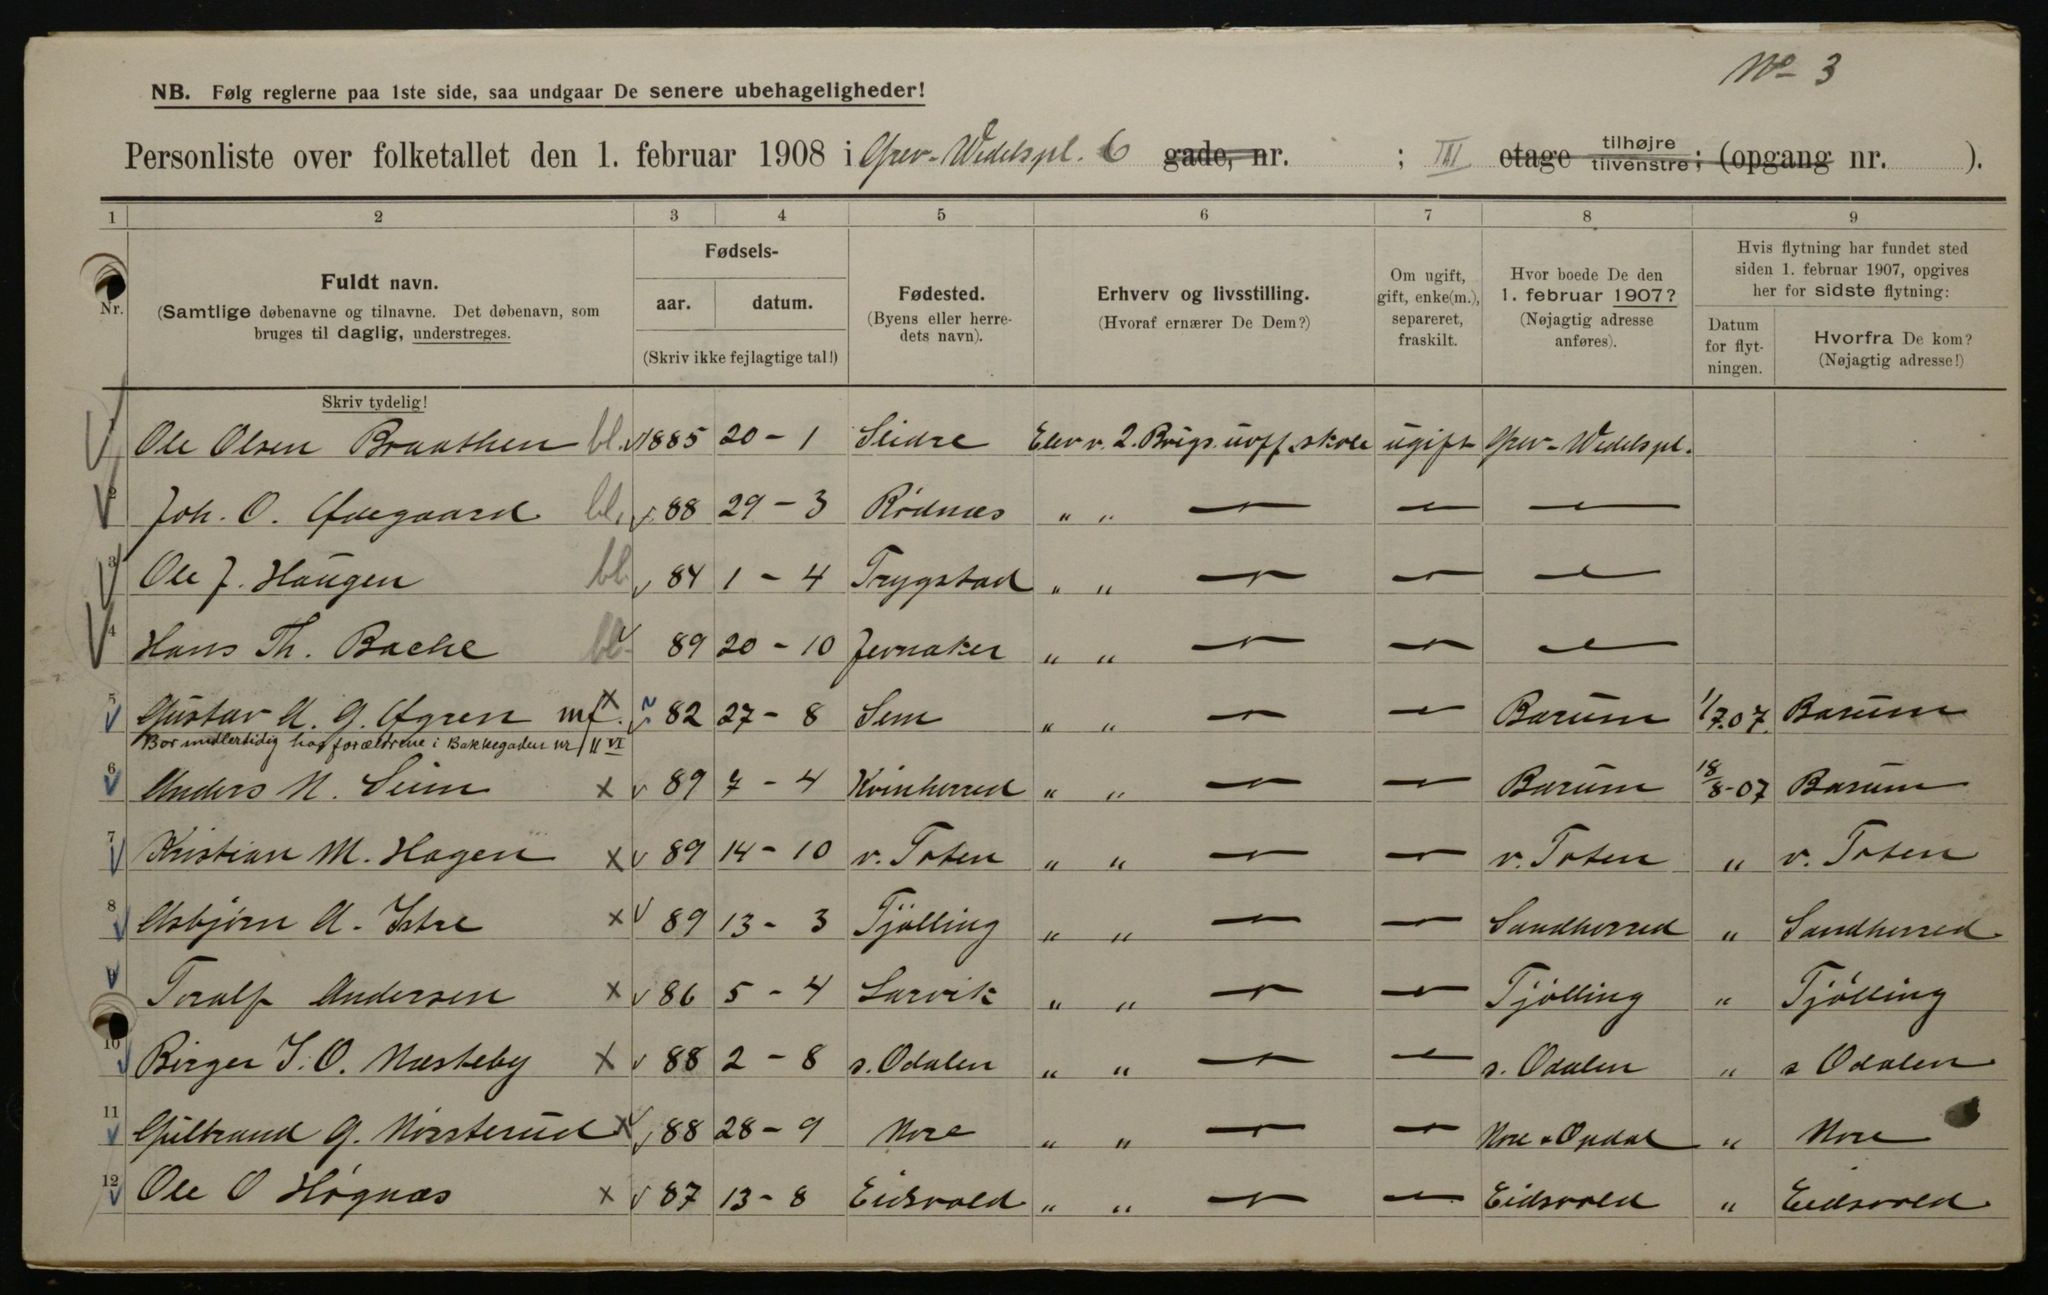 No 3
NB. Følg reglerne paa 1ste side, saa undgaar De senere ubehageligheder!
Personliste over folketallet den 1. februar 1908 i Grev-Wedelspl. 6 gade, nr. ; III etage tilhøjre tilvenstre; (opgang nr. ).
1 2 3 4 5 6 7 8 9
Nr.
Fuldt navn.
(Samtlige døbenavne og tilnavne. Det døbenavn, som
bruges til daglig, understreges.
Skriv tydelig!
Fødsels-
aar. datum.
(Skriv ikke fejlagtige tal!)
Fødested.
(Byens eller herre-
dets navn).
Erhverv og livsstilling.
(Hvoraf ernærer De Dem?)
Om ugift,
gift, enke(m.),
separeret,
fraskilt.
Hvor boede De den
1. februar 1907?
(Nøjagtig adresse
anføres).
Hvis flytning har fundet sted
siden 1. februar 1907, opgives
her for sidste flytning:
Datum
for flyt-
ningen.
Hvorfra De kom?
(Nøjagtig adresse!)
Ole Olsen Braathen bl. 1885 20 - 1 Slidre Elev v. 2. Brigs. uoff. skole ugift Grev-Wedelspl.
2 Joh. O. bl. 88 29 - 3 Rødnæs " " — — —
3 Ole J. Haugen bl. 84 1 - 4 Trygstad " " — — —
4 Hans Th. Bache bl. 89 20 - 10 Jevnaker " " — — —
5 Gustav A. G. mf. x 82 27 - 8 Sem " " — — Barum 1/7.07. Barum
Bor midlertidig hos forældrene i Bakkegaden nr 11 VI
6 Anders N. Seim x 89 7 - 4 Kvinherred " " — — Barum 18/8-07 Barum
7 Kristian M. Hagen x 89 14 - 10 v. Toten " " — — v. Toten " v. Toten
8 Asbjørn A. Istre x 89 13 - 3 Tjølling " " — — Sandherred " Sandherred
9 Toralf Andersen x 86 5 - 4 Larvik " " — — Tjølling " Tjølling
10 Birger J. O. Næsteby x 88 2 - 8 s. Odalen " " — — s. Odalen " s Odalen
11 Gulbrand G. Nørsterud x 88 28 - 9 Nore " " — — Nore o Opdal " Nore
12 Ole O Høgnæs x 87 13 - 8 Eidsvold " " — — Eidsvold " Eidsvold